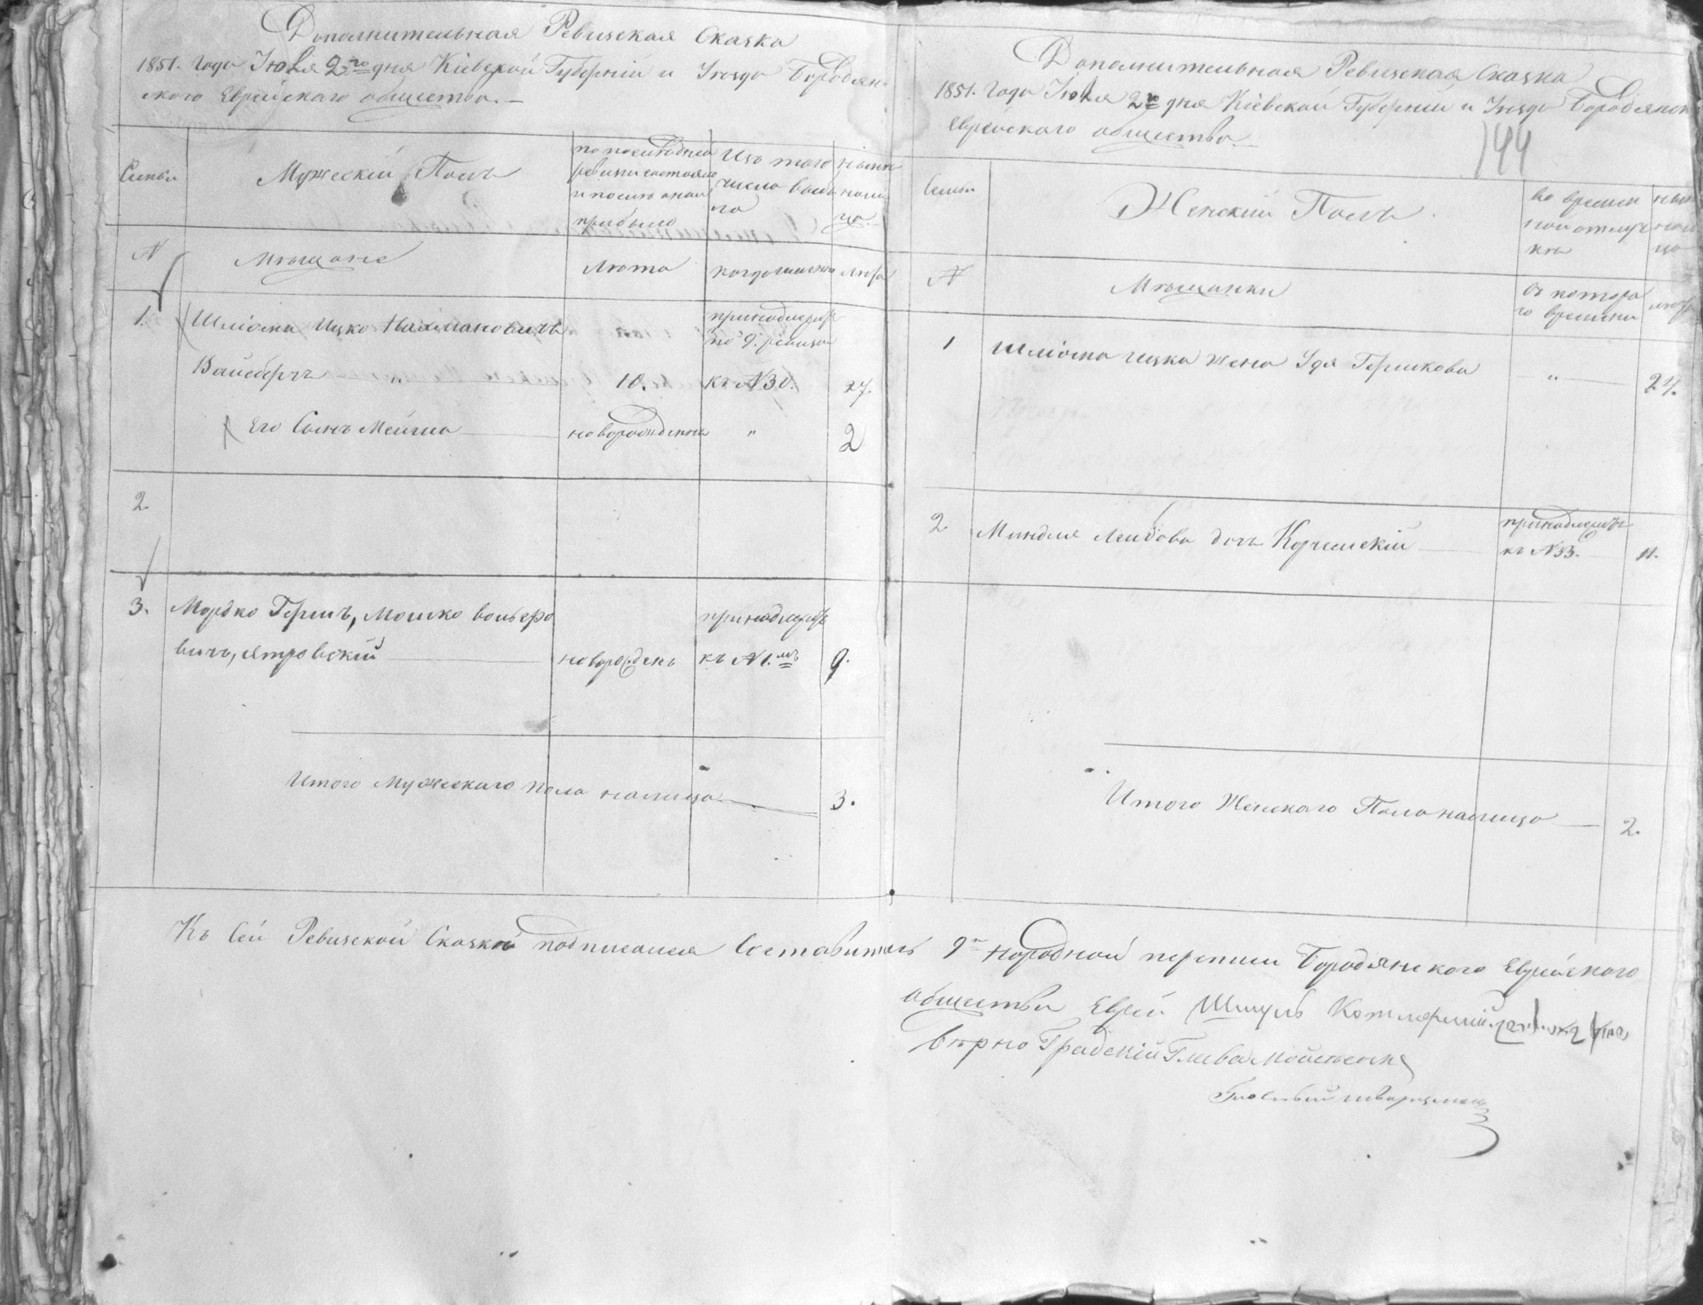 Дополнительная Ревизская Сказка
1851. Года Июля 2го дня Кіевской Губерніи и Уезда Бородян-
ского Еврейского общества.
Семьи
Мужескій Полъ
по последней
ревизіи состояло
и после оной
прибыло
Изъ того
числа выбы
ло
ныне
нали
цо
N
Мещане
Лета
когда именно
лета
1.
Шліома Ицко Нахмановичъ
принадлежитъ
по 9. ревизіи
Вайсберъ
10.
къ N 30.
27.
Его Сынъ Мейша
новорожденный
"
2
2
3.
Мордко Гершъ, Мошко вольфро
вичъ, ятровскій
новорожденъ
принадлежитъ
къ N 1.мъ
9.
Итого Мужескаго пола налицо
3.
Дополнительная Ревизская Сказка
1851. Года Июля 2го дня Кіевской Губерніи и Уезда Бородянск
Еврейского общества
144
Семьи
Женскій Полъ
во времен
ной отлуч
ке
ныне
нали
цо
N
Мещанки
съ которо
го времени
лета
1
Шліома Ицка жена Удя Гершкова
"
24.
2
Миндля Лейбова дочь Кочинскій
принадлежитъ
къ N 33.
11.
Итого Женского Пола налицо
2.
Къ Сей Ревизской Сказке подписался Составитель 9й народной переписи Бородянского Еврейского
общества Еврей Шмуль Котлярскій
Верно Градскій Глава